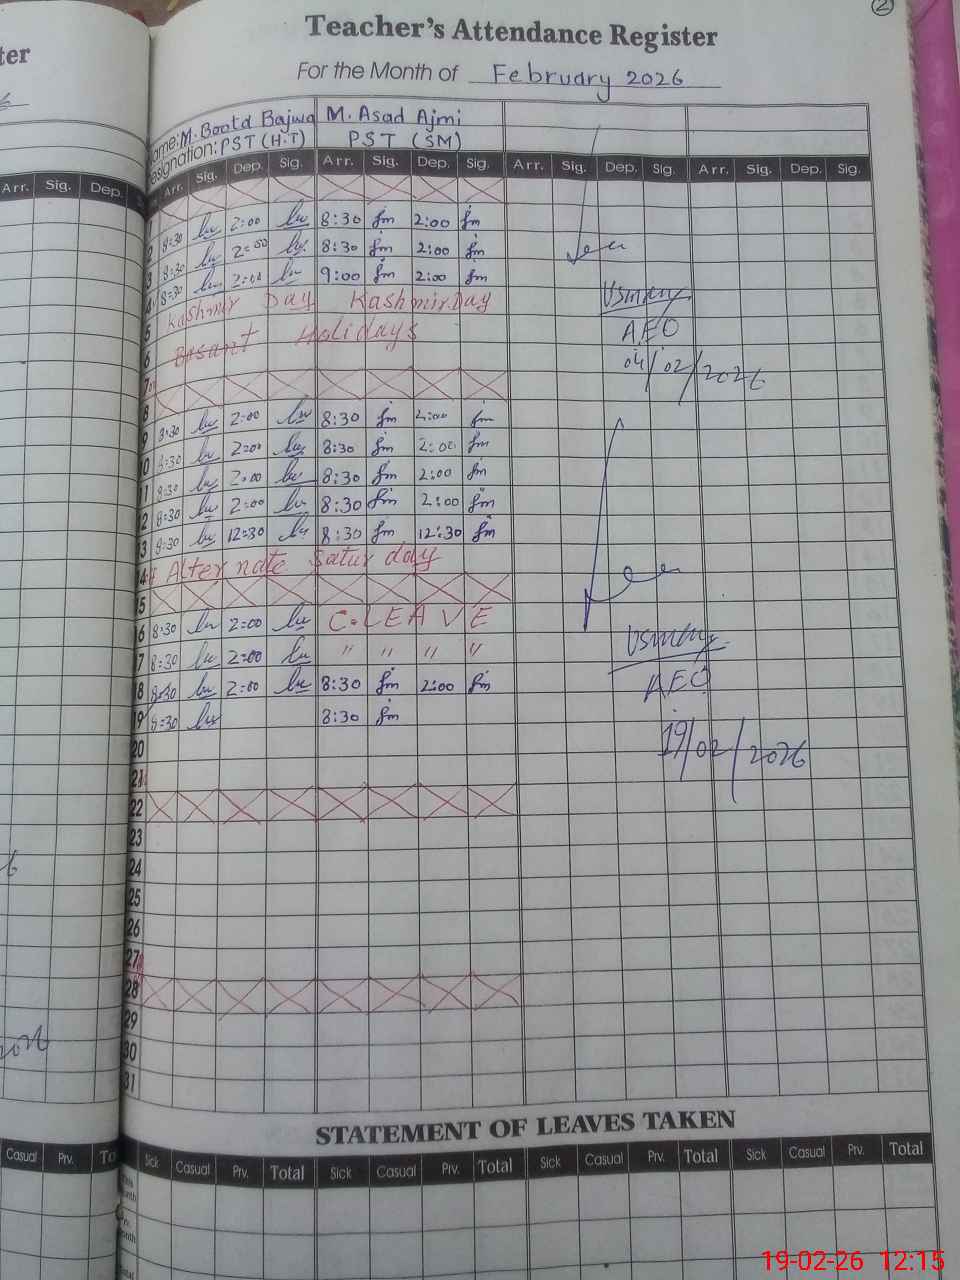 2
ter
Teacher's Attendance Register
For the Month of February 2026
ame: M. Boota Bajwa M. Asad Ajmi
esignation: PST (H.T) PST (SM)
Arr. Sig. Dep. Arr. Sig. Dep. Sig. Arr. Sig. Dep. Sig. Arr. Sig. Dep. Sig. Arr. Sig. Dep. Sig.
2 8:30 2:00 8:30 2:00
3 8:30 2:00 8:30 2:00
4 8:30 2:00 9:00 2:00
5 Kashmir Day Kashmir Day
6 Basant Holidays
7
8
9 8:30 2:00 8:30 2:00
10 8:30 2:00 8:30 2:00
11 8:30 2:00 8:30 2:00
12 8:30 2:00 8:30 2:00
13 8:30 12:30 8:30 12:30
14 Alternate Saturday
15
16 8:30 2:00 C.LEAVE
17 8:30 2:00 " " " "
18 8:30 2:00 8:30 2:00
19 8:30 8:30
20
21
22
23
24
25
26
27
28
29
30
31
Usman
AEO
04/02/2026
Usman
AEO
19/02/2026
STATEMENT OF LEAVES TAKEN
Casual Prv. To Sick Casual Prv. Total Sick Casual Prv. Total Sick Casual Prv. Total Sick Casual Prv. Total
19-02-26 12:15